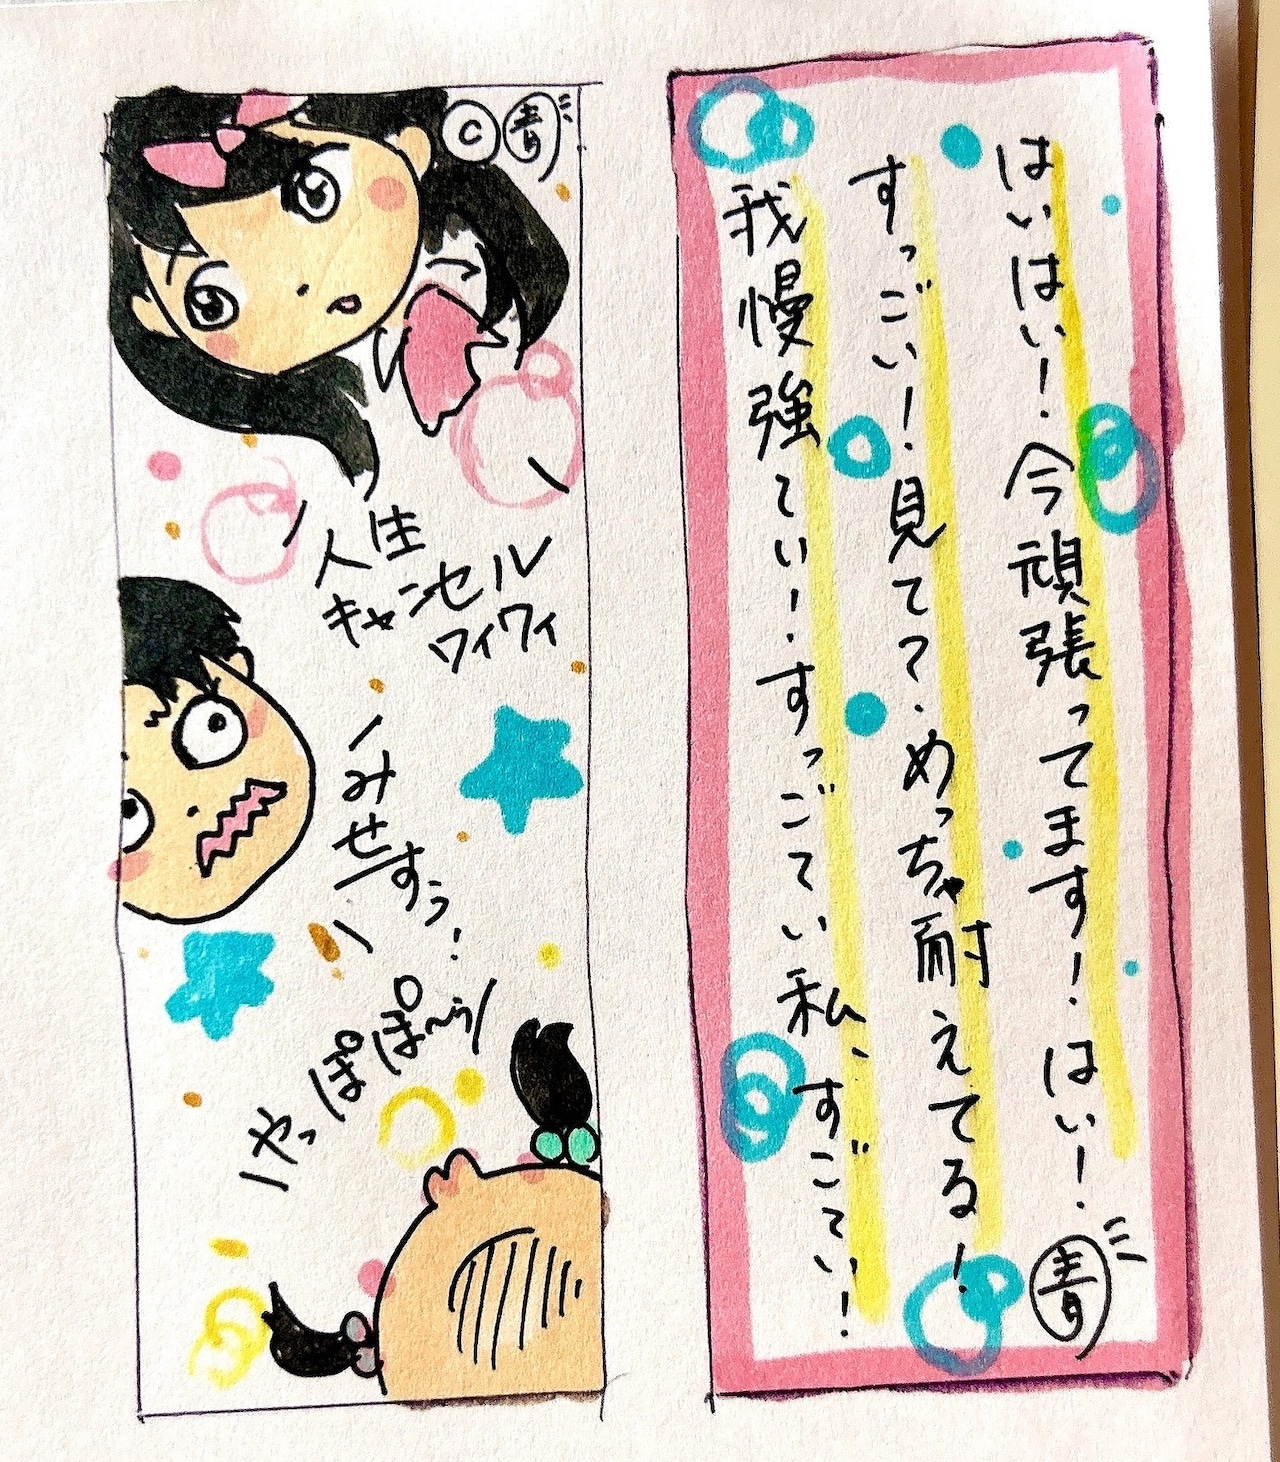 はいはい！今頑張ってます！はい！
すっごい！見て？めっちゃ耐えてる！
我慢強てい！すっごてい私、すごてい！
青
©青
人生
キャンセル
ワイワイ
みせすぅ！
やっぽぽ〜ぅ